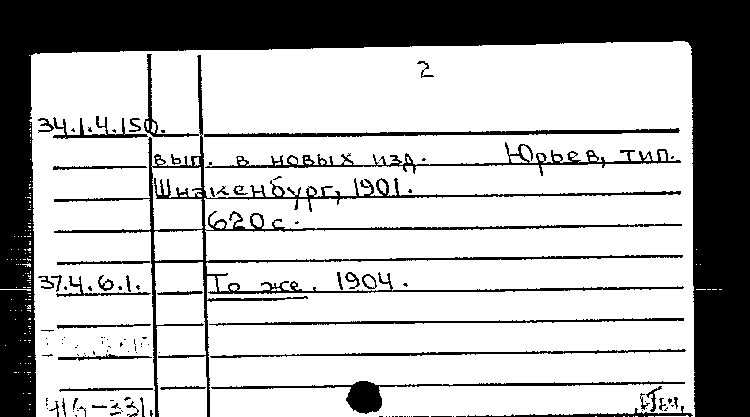 2
34.1.4.150.
вып. в новых изд. Юрьев, тип.
Шнакенбург, 1901.
620 с.
37.4.6.1. То же. 1904.
416-331.